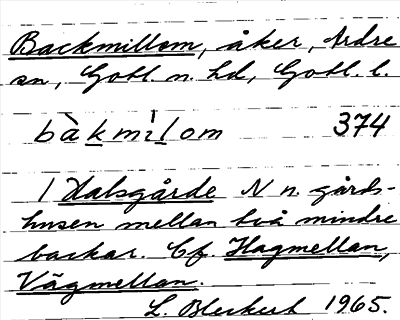 Backmillom, åker, Ardre
sn, Gotl. n. hd, Gotl. l.
bàkmìlom 374
I Halsgårde N n. gårds-
husen mellan två mindre
backar. Cf. Hagmellan,
Vägmellan.
L. Bleckert 1965.